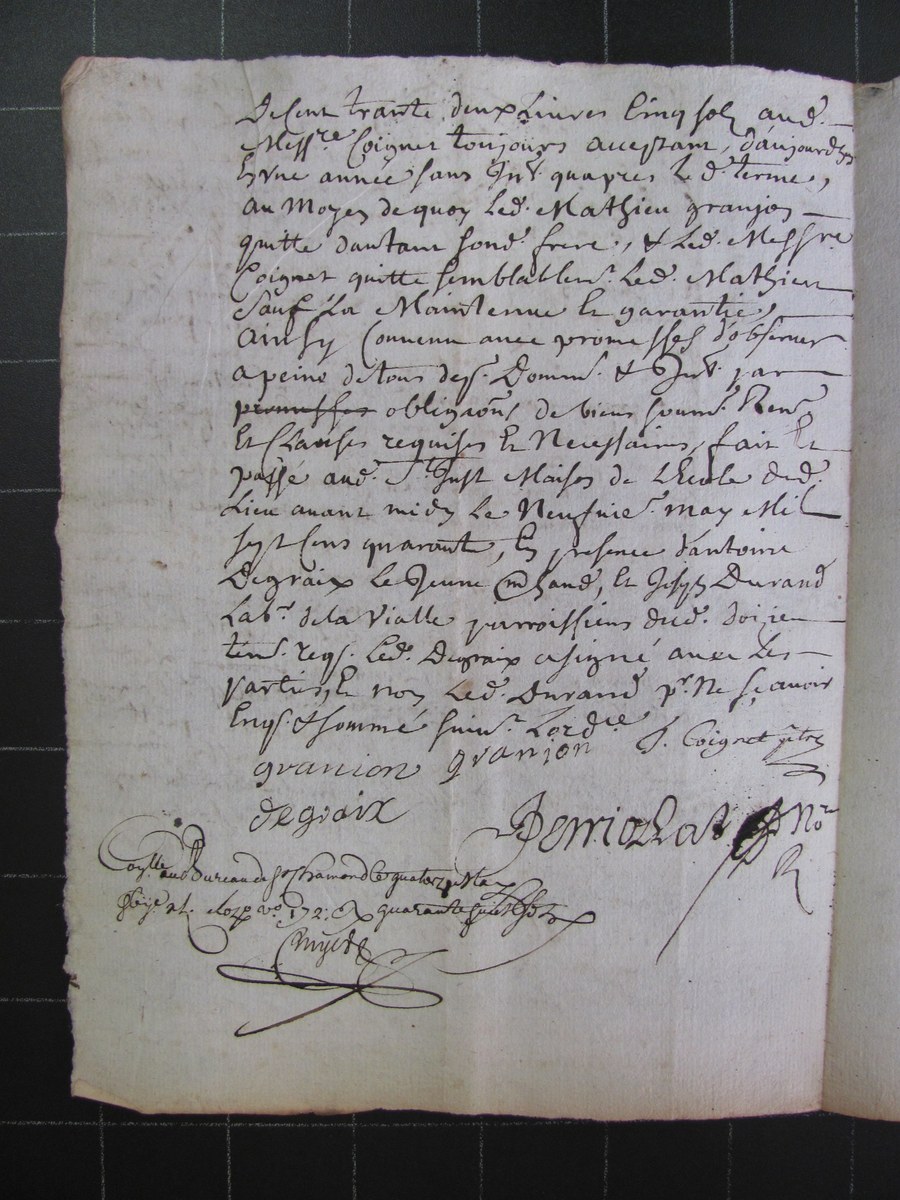 De cent trante deux Livres Cinq solz aud.
Mess.re Coignet toujours acceptant, d'aujourd'huy
En une année sans Int. qu'apres led. terme,
au Moyen de quoy Led. Mathieu granjon
quitte dautant sond. frere, & Led. Messre
Coignet quitte semblablem.t Led. Mathieu
Sauf La Maintenue Et garantie,
Ainsy Convenu avec promesses d'observer
a peine de tous desp. Domm. & Int. par
promesses obligaons, de biens soum. Renon.
Et Clauses requises Et Necessaires, fait Et
passé aud. St Just Maison de L'Ecole dud.
Lieu avant midy Le Neufvie. may Mil
sept Cens quarante, En presence d'antoine
Degraix Le Jeune mchand, Et Joseph Durand
Lab.r de la Vialle parroissiens dud. doizieu
tem. reqs. Led. Degraix a signé avec Les
Parties, Et non Led. Durand p.r Ne sçavoir
Enqs. & sommé suiv.t L'ord.ce
granion granjon J. Coignet ptre
degraix
No.re
au Bureau de St Chamond Le quatorze May